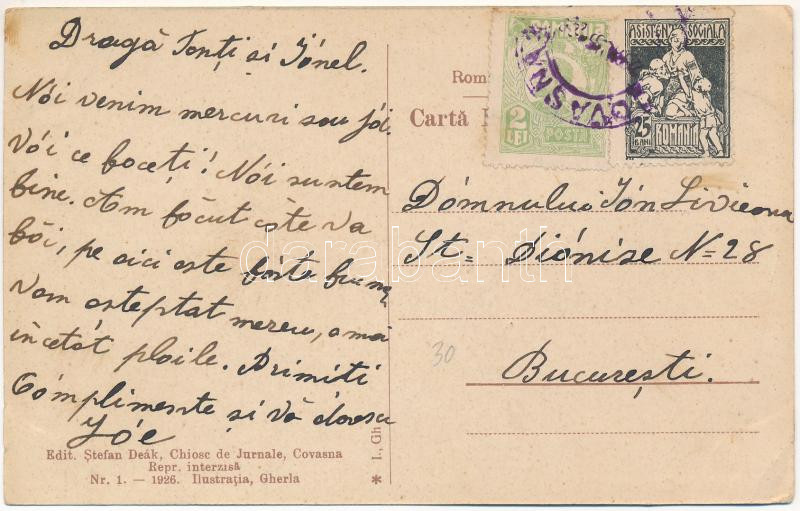 Dragă Ionți si Iónel.
Nói venim mercuri sau jói.
Vói ce faceți! Nói suntem
bine. Am făcut este va
băi, pe aici este fórte
vam asteptat mereu, a mai
incetat ploile. Primiti
Cómplimente și vă doresc
Jóe
Edit. Ștefan Deák, Chiosc de Jurnale, Covasna
Repr. interzisă
Nr. 1. — 1926. Ilustrația, Gherla
* I., Gh
Rom
Cartă
2
LEI
POSTA
COVASNA
ASISTENȚA SOCIALA
25
BANI
ROMANIA
Domnului Ión
St= Diónise N=28
București.
30
darabanth